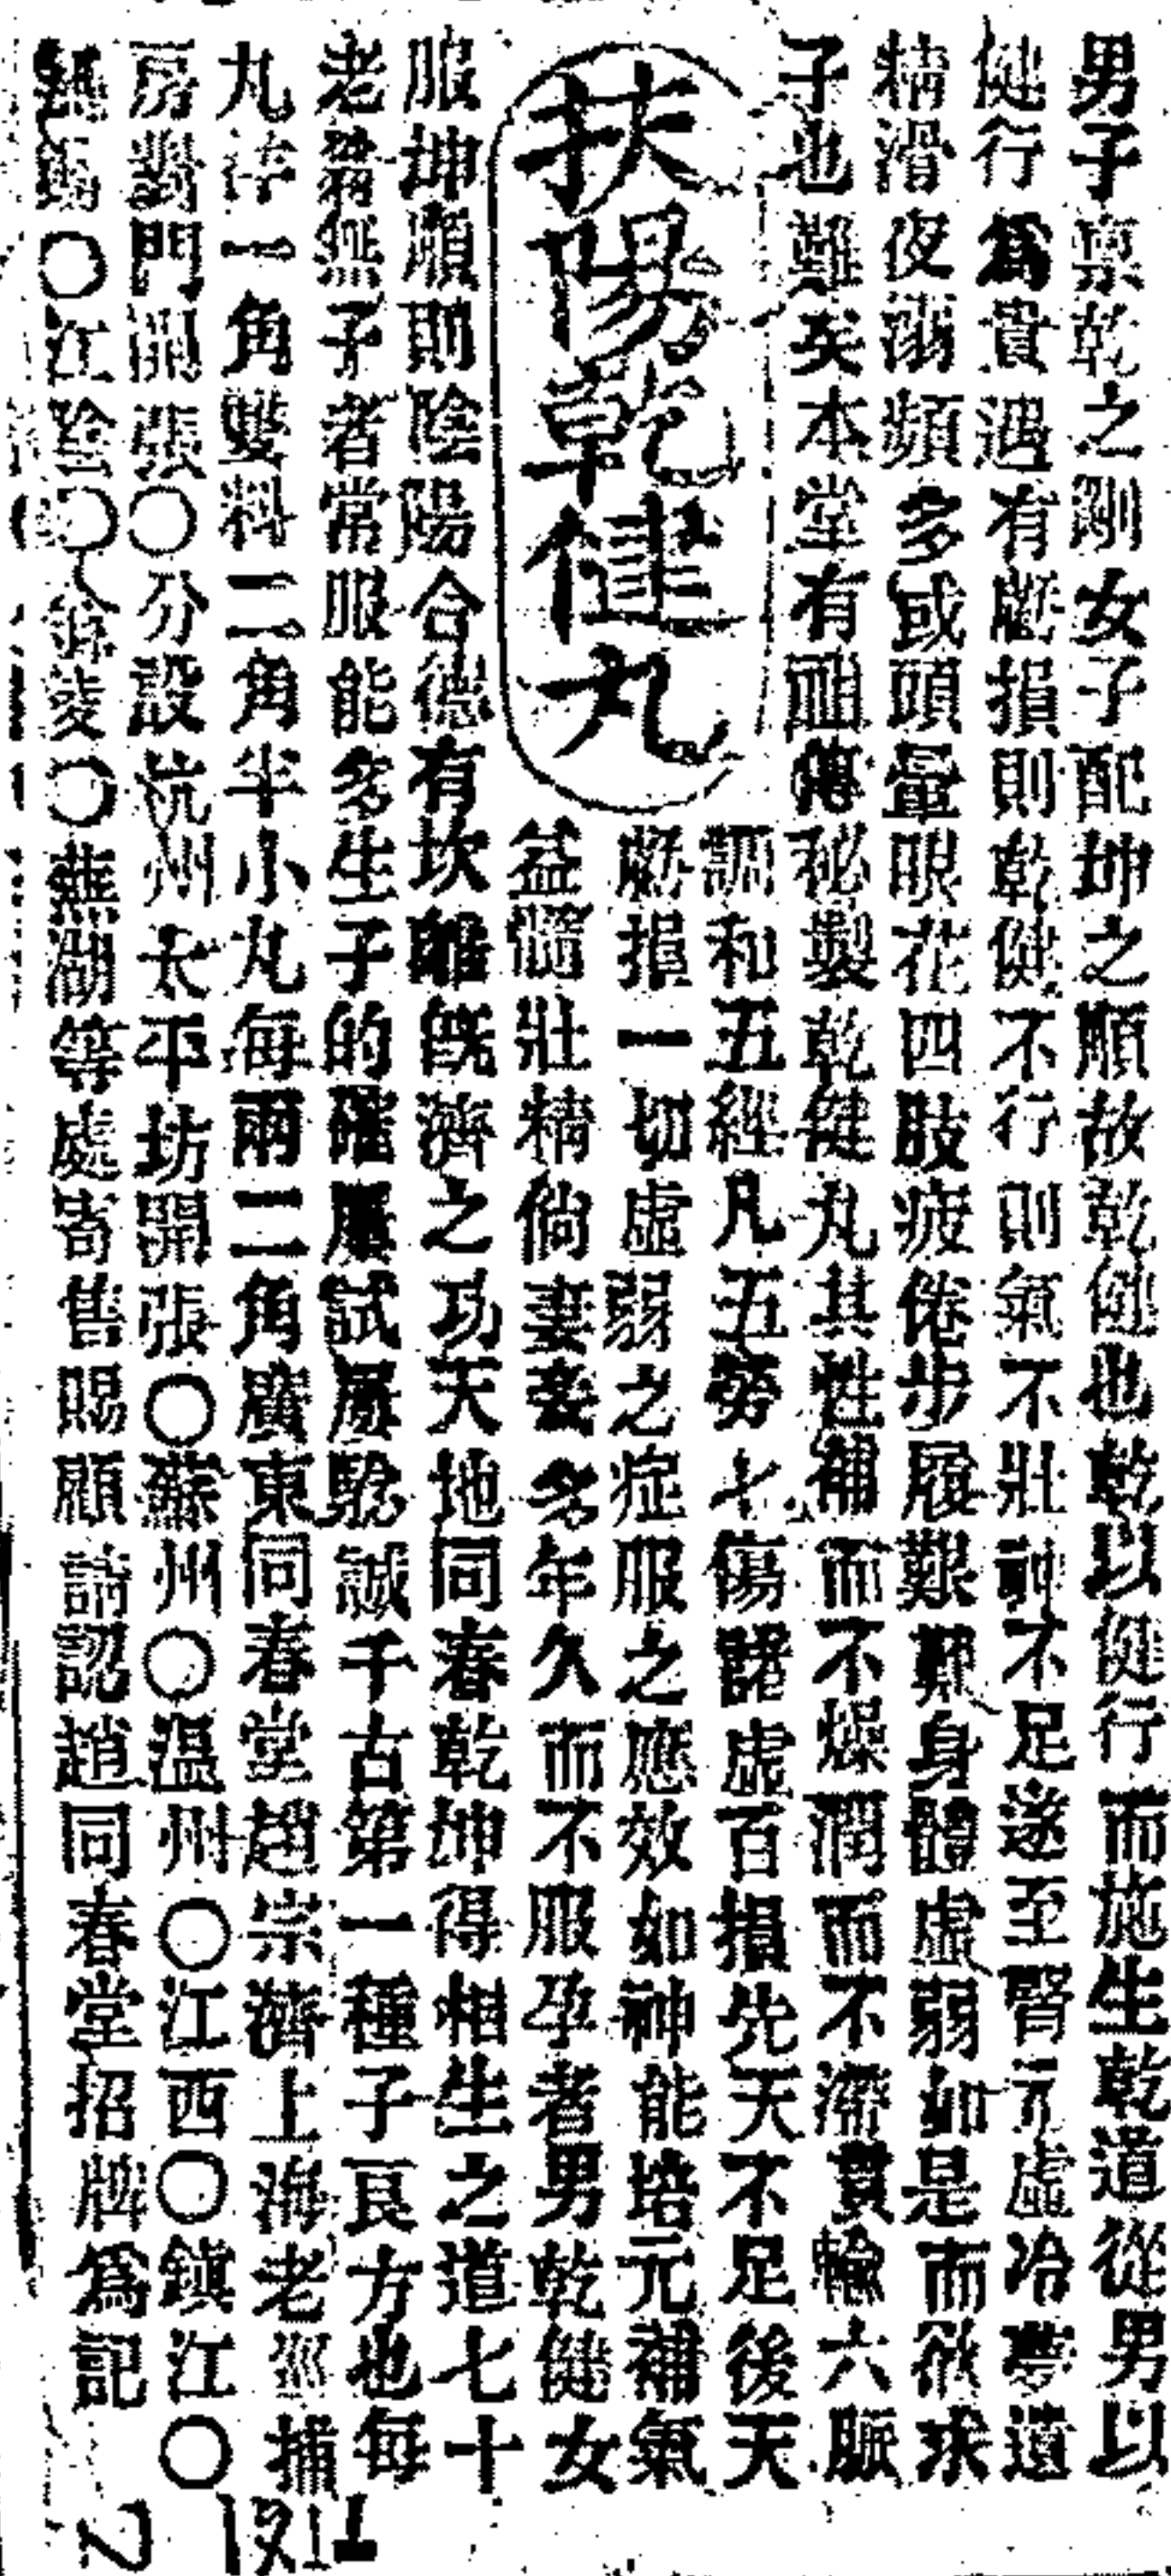 男子禀乾之剛女子配坤之順故乾健也乾以健行而施生乾道從男以
健行為貴遇有虧損則乾健不行則氣不壯神不足遂至腎元虛冷夢遺
精滑夜溺頻多或頭暈眼花四肢疲倦步履艱難身體虛弱如是而欲求
子也難矣本堂有祖傳秘製乾健丸其性補而不燥潤而不滯貫輸六脈
扶陽乾健丸
調和五經凡五勞七傷諸虛百損先天不足後天
虧損一切虛弱之症服之應效如神能培元補氣
益髓壯精倘妻妾多年久而不服孕者男乾健女
服坤順則陰陽合德有坎離既濟之功天地同春乾坤得相生之道七十
老翁無子者常服能多生子的確屢試屢驗誠千古第一種子良方也每
丸洋一角雙料二角半小丸每兩二角廣東同春堂趙宗濟上海老巡捕
房對門開張〇分設杭州太平坊開張〇蘇州〇溫州〇江西〇鎮江〇
無錫〇江陰〇〇蕪湖等處寄售賜顧請認趙同春堂招牌為記